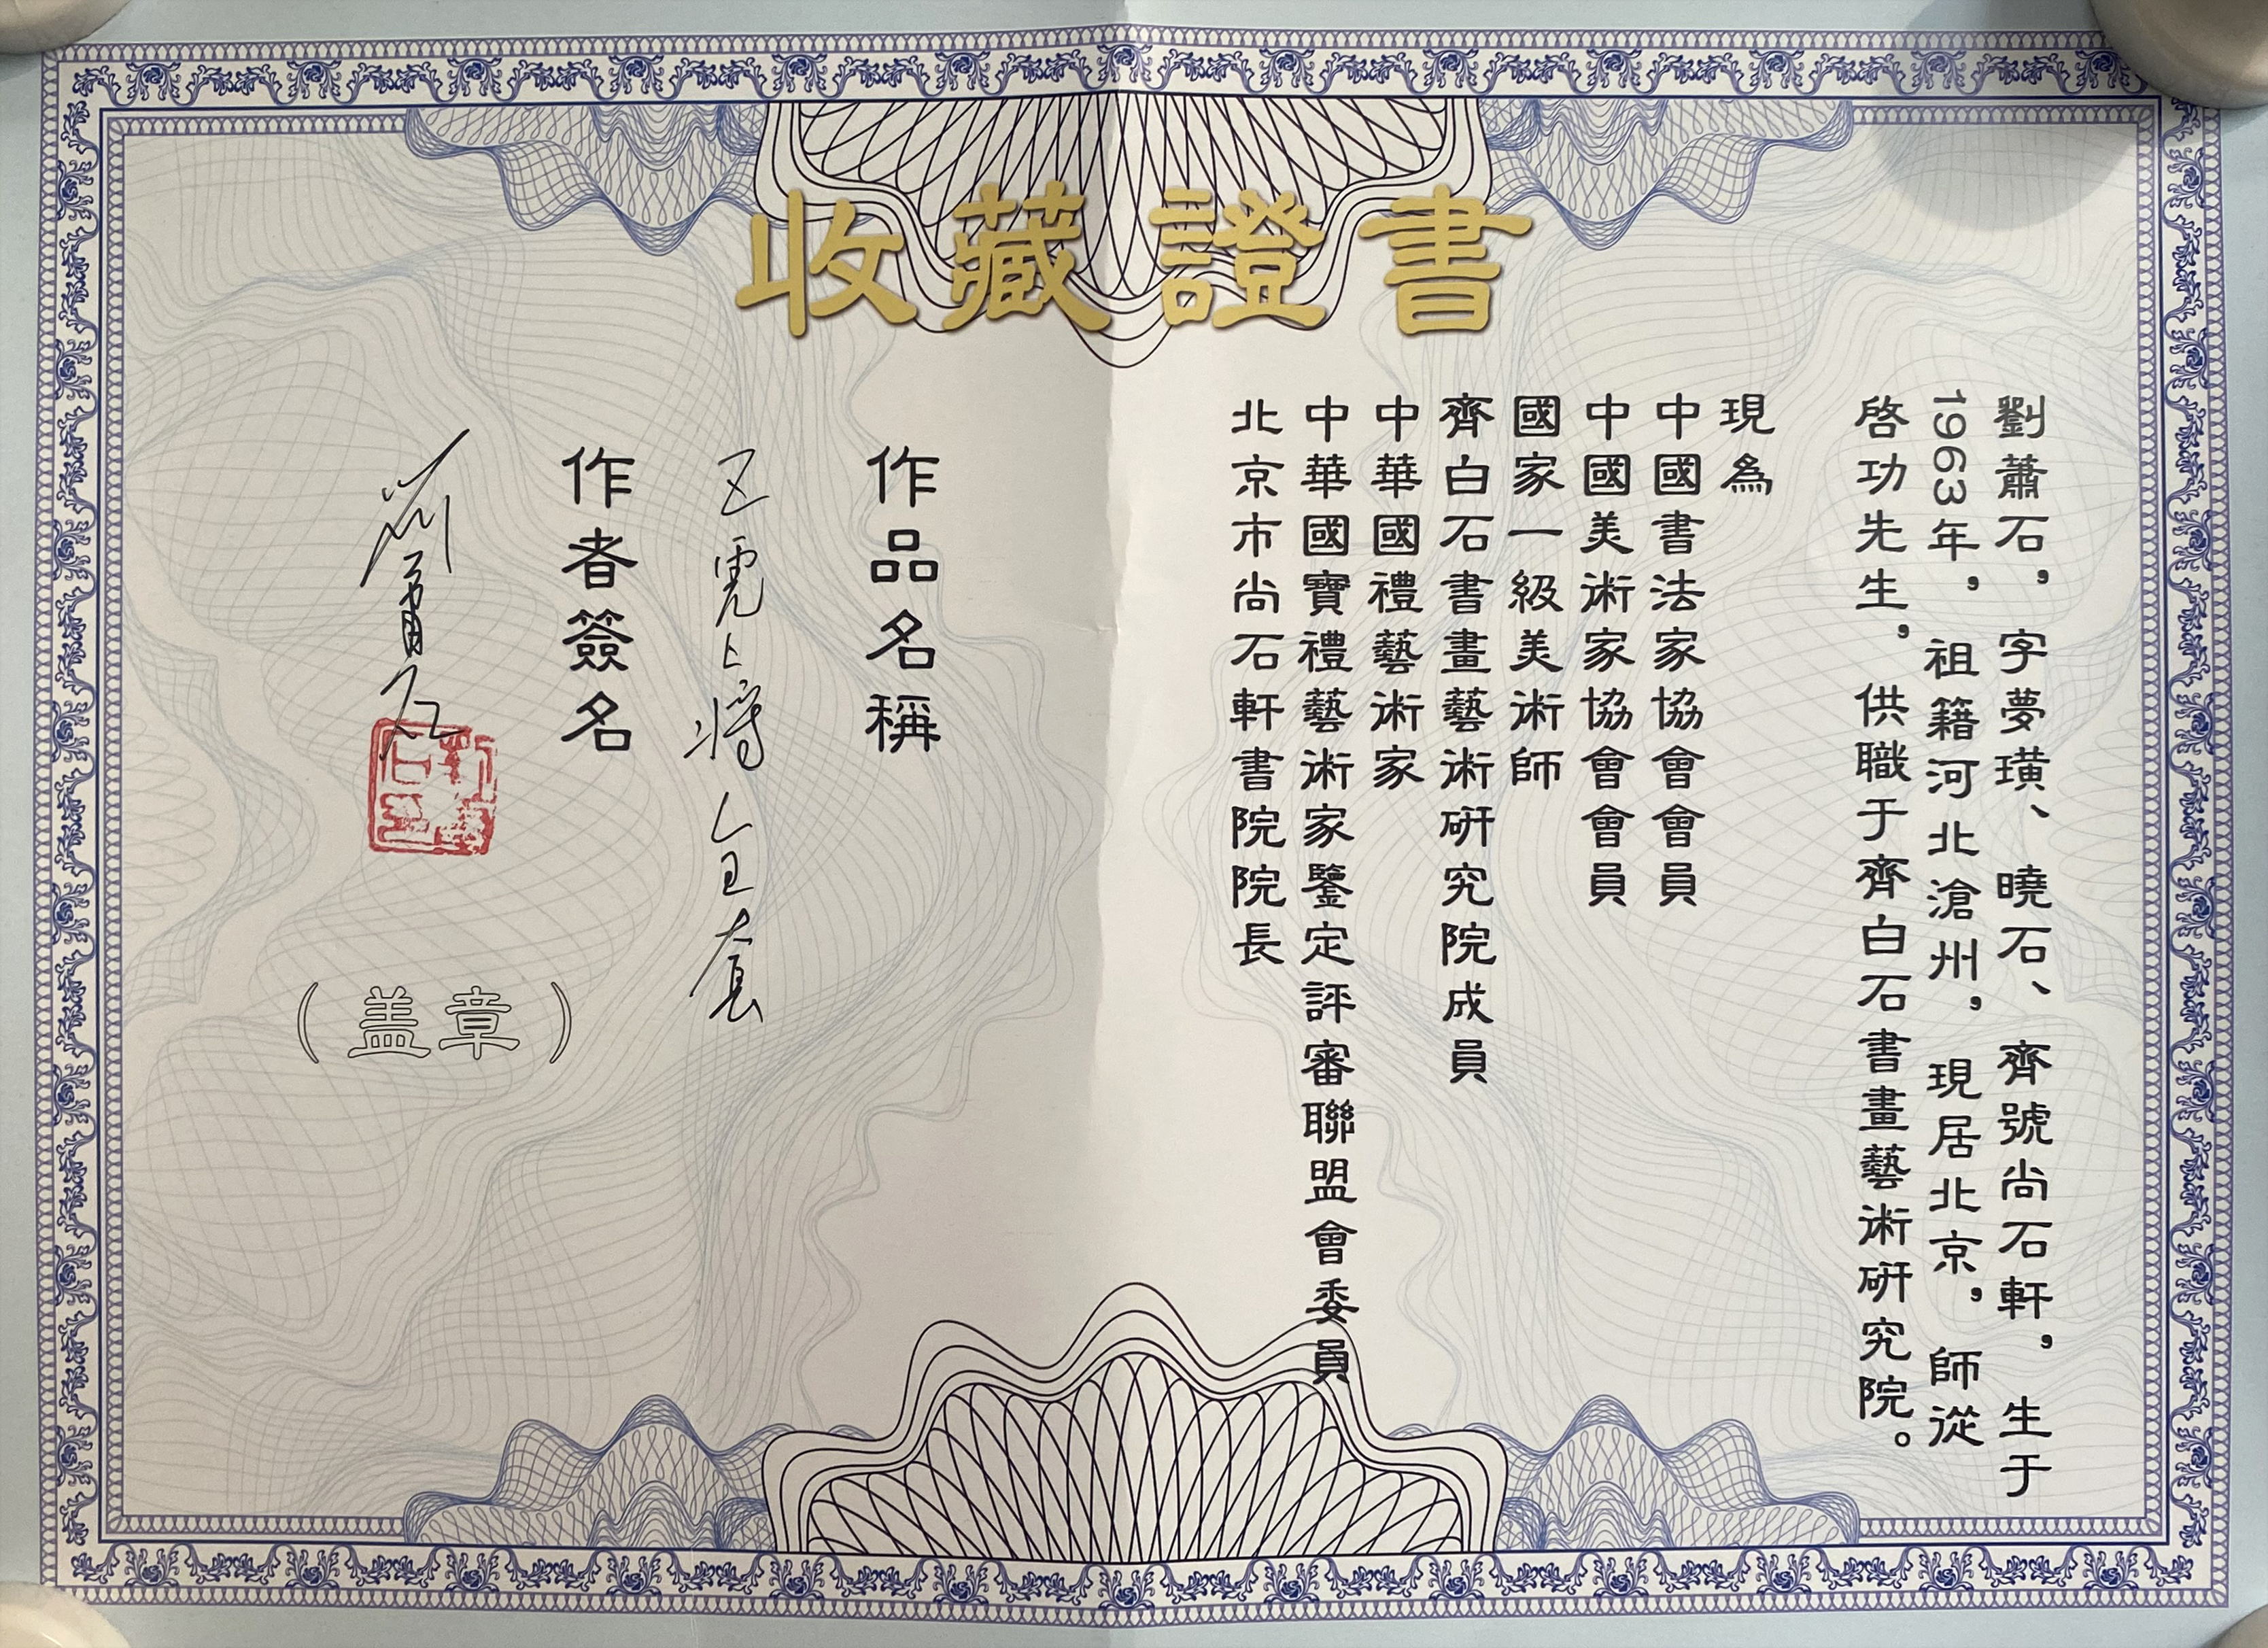 收藏證書
劉蕭石，字夢璜、曉石、齊號尚石軒，生于
1963年，祖籍河北滄州，現居北京，師從
啓功先生，供職于齊白石書畫藝術研究院。
現為
中國書法家協會會員
中國美術家協會會員
國家一級美術師
齊白石書畫藝術研究院成員
中華國禮藝術家
中華國寶禮藝術家鑒定評審聯盟會委員
北京市尚石軒書院院長
作品名稱
五虎上將全套
作者簽名
（盖章）